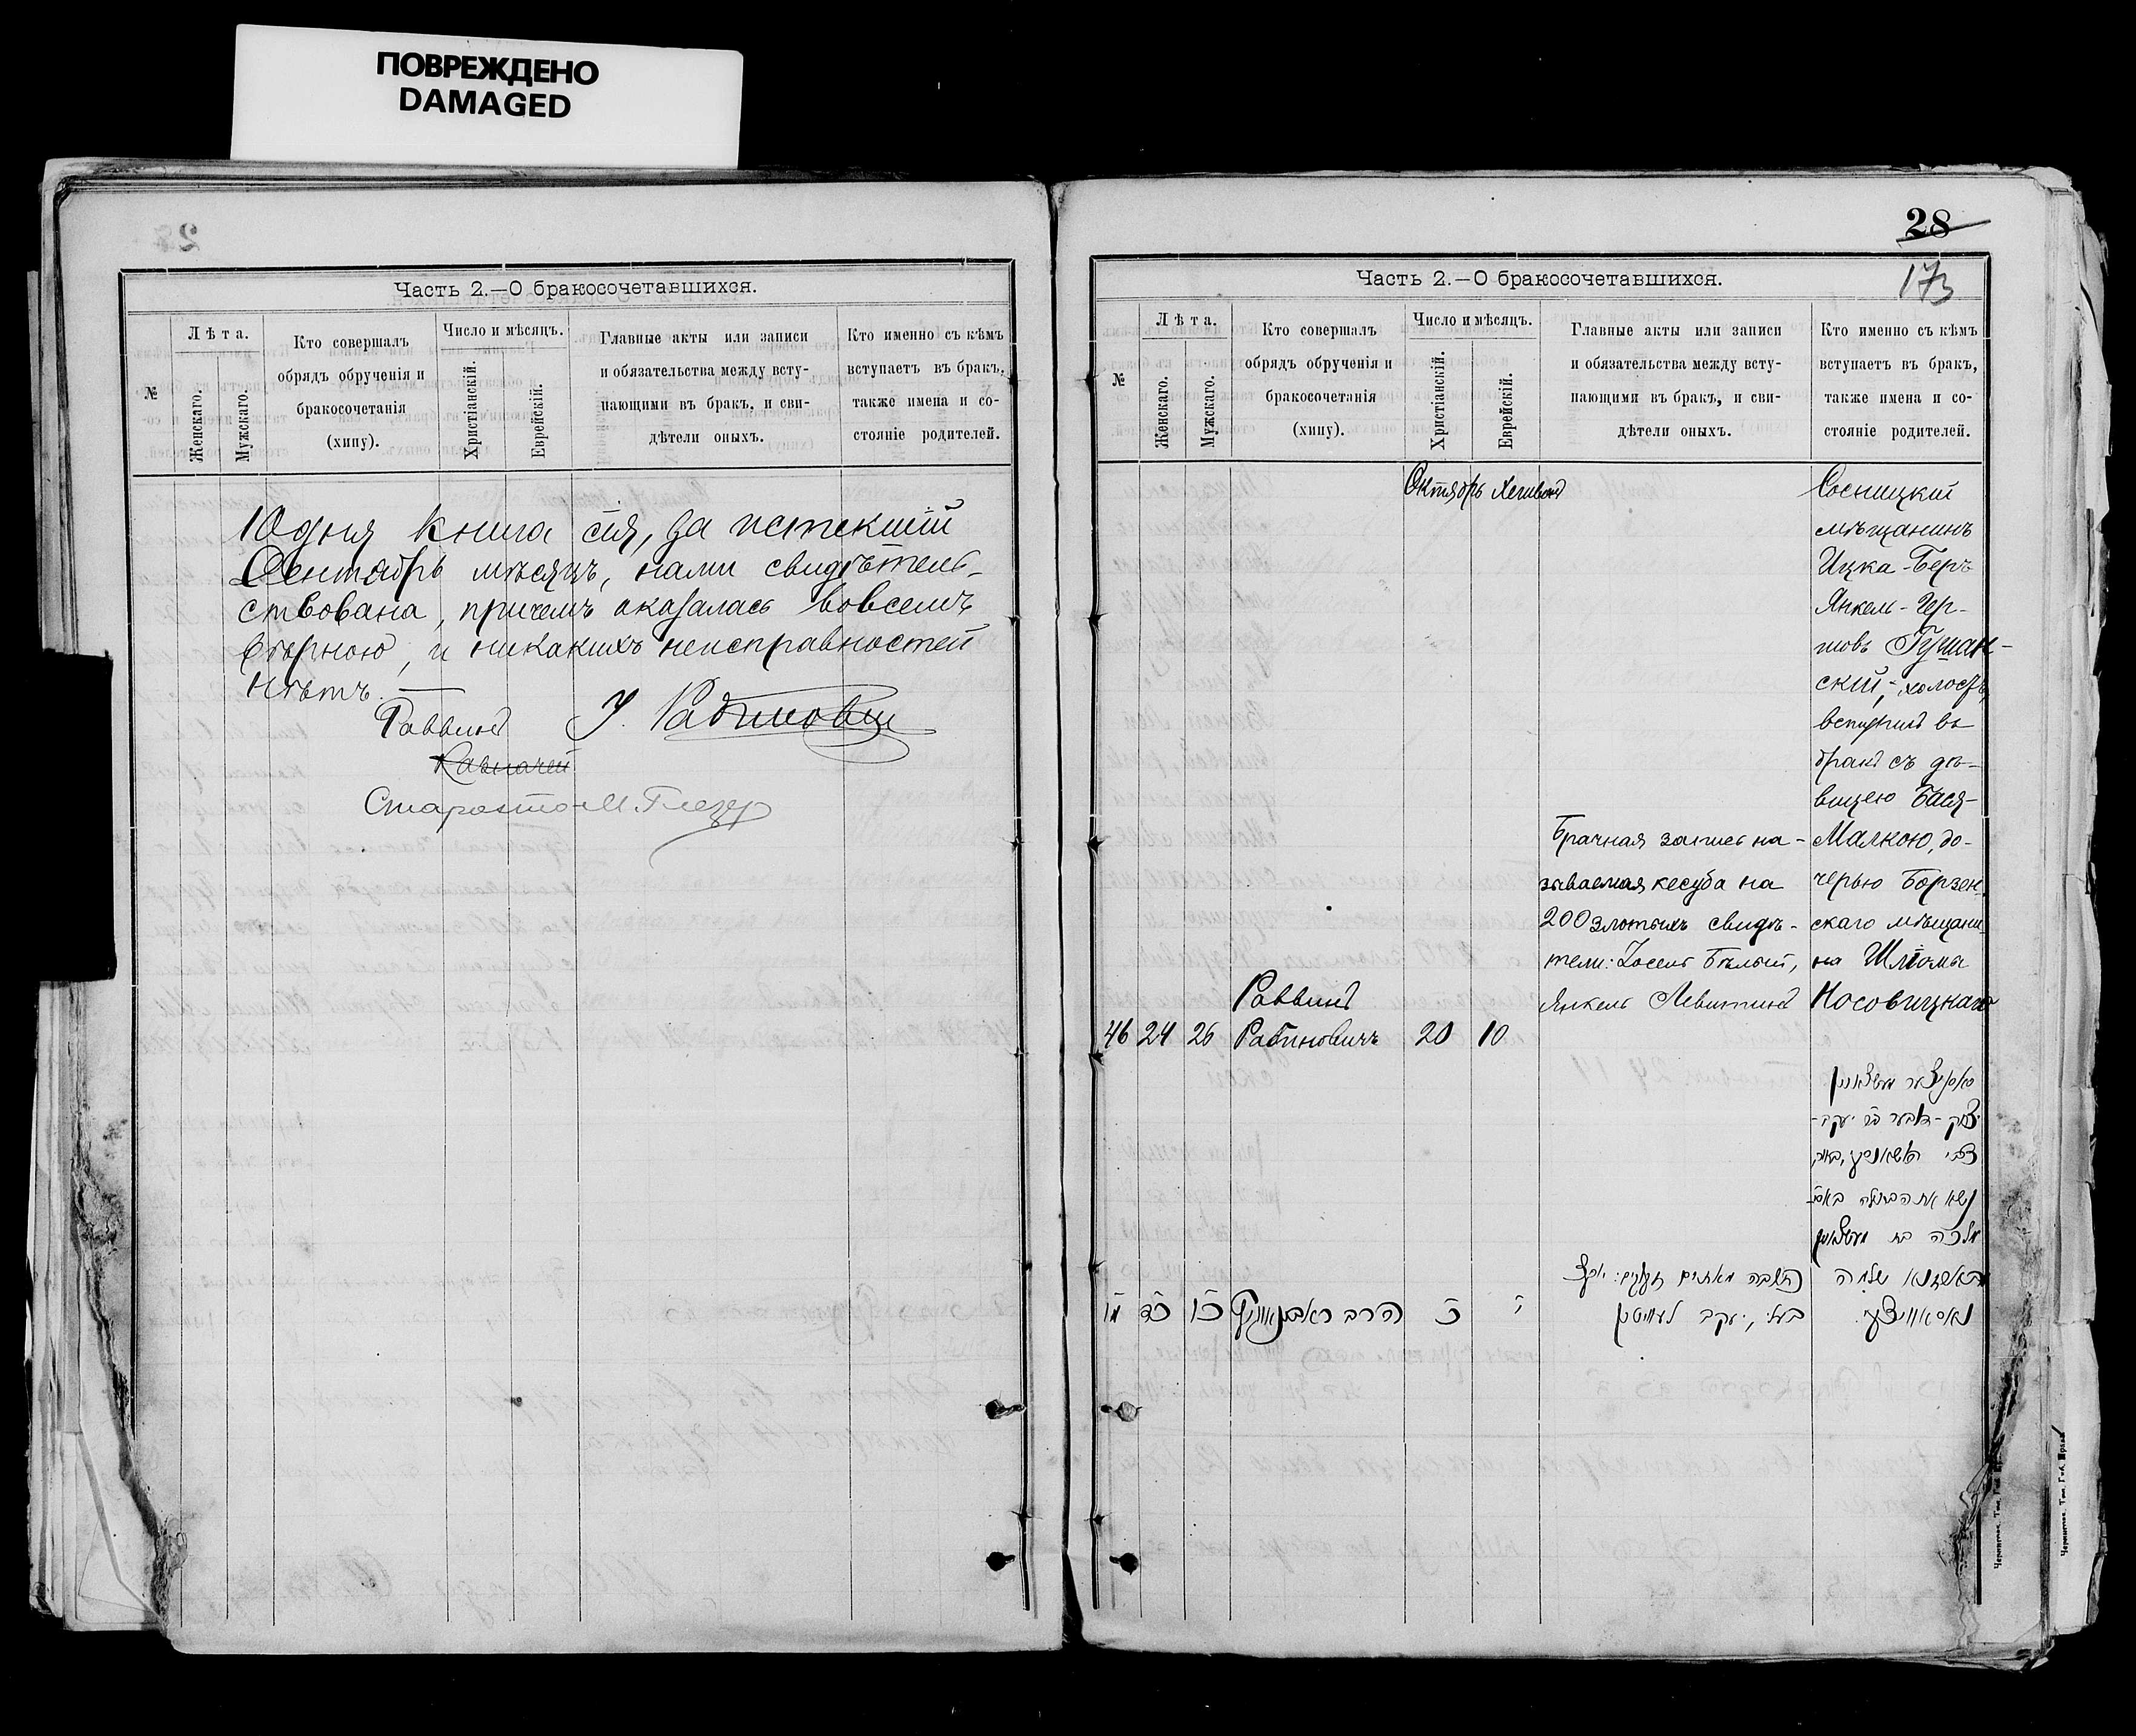 ПОВРЕЖДЕНО
DAMAGED
Часть 2.—О бракосочетавшихся.
№
Лѣта.
Женскаго.
Мужскаго.
Кто совершалъ
обрядъ обрученія и
бракосочетанія
(хипу).
Число и мѣсяцъ.
Христіанскій.
Еврейскій.
Главные акты или записи
и обязательства между всту-
пающими въ бракъ, и сви-
дѣтели оныхъ.
Кто именно съ кѣмъ
вступаетъ въ бракъ,
также имена и со-
стояніе родителей.
10 дня книга сія, за истекшій
Сентябрь мѣсяцъ, нами свидѣтель-
ствована, причемъ оказалась вовсемъ
вѣрною, и никакихъ неисправностей
нѣтъ.—
Раввинъ У. Рабиновичъ
Казначей
Староста М. Глезер
28
173
Часть 2.—О бракосочетавшихся.
№
Лѣта.
Женскаго.
Мужскаго.
Кто совершалъ
обрядъ обрученія и
бракосочетанія
(хипу).
Число и мѣсяцъ.
Христіанскій.
Еврейскій.
Главные акты или записи
и обязательства между всту-
пающими въ бракъ, и сви-
дѣтели оныхъ.
Кто именно съ кѣмъ
вступаетъ въ бракъ,
также имена и со-
стояніе родителей.
46
24
26
Раввинъ
Рабиновичъ
Октябрь
20
Хешвонъ
10
Брачная запись на-
зываемая кесуба на
200 злотыхъ свидѣ-
тели: Іосель Бѣлый,
Янкель Левитинъ
Сосницкій
мѣщанинъ
Ицка-Беръ
Янкель-Гер-
шовъ Гушан-
скій, холостъ,
вступилъ въ
бракъ съ дѣ-
вицею Бася-
Малкою, до-
черью Борзен-
скаго мѣщани-
на Шліома
Носовицкаго
מו
כד
כו
הרב ראבינאוויץ
כ
י
כתובה מאתים זהובים:
יעקב לעוויטין
נשא את הבתולה באסי
מלכה בת
שלמה
נאסאוויצקי
Черниговъ. Тип. Губ. Правл.